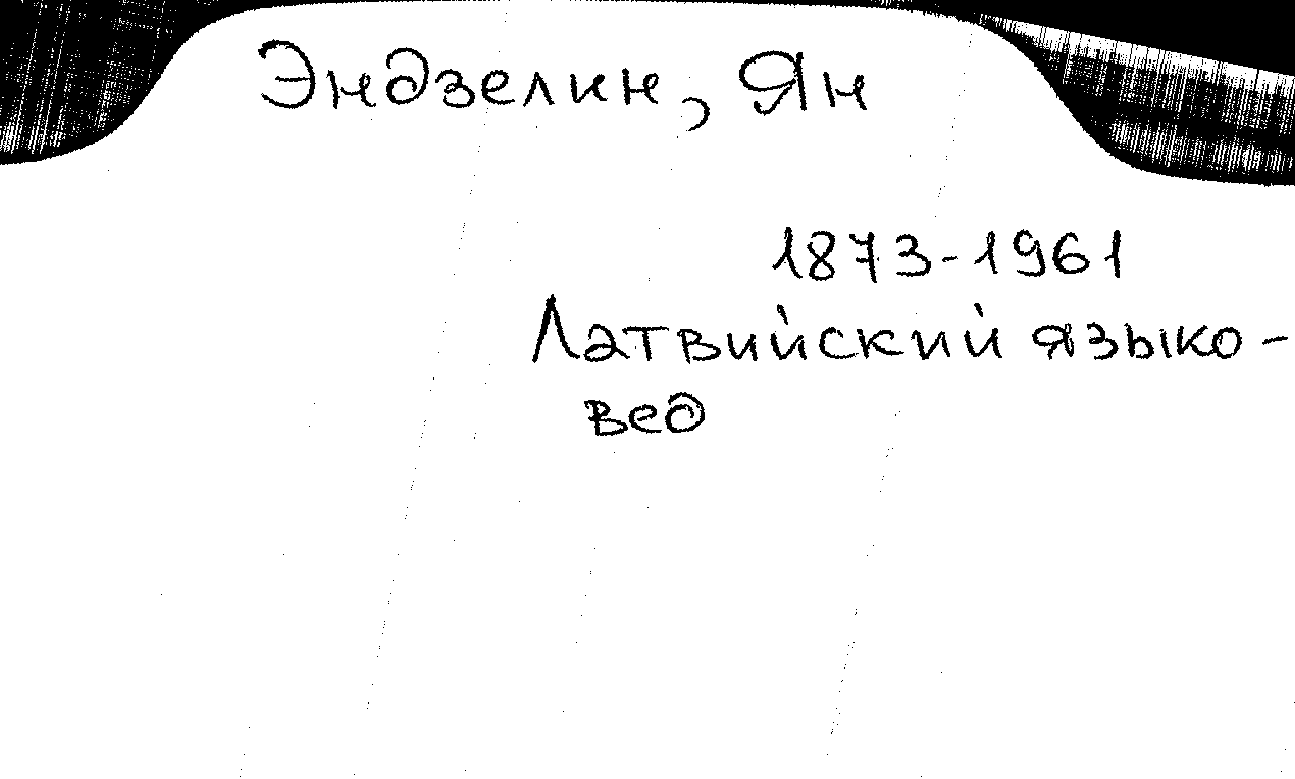 Эндзелин, Ян
1873-1961
Латвийский языко-
вед